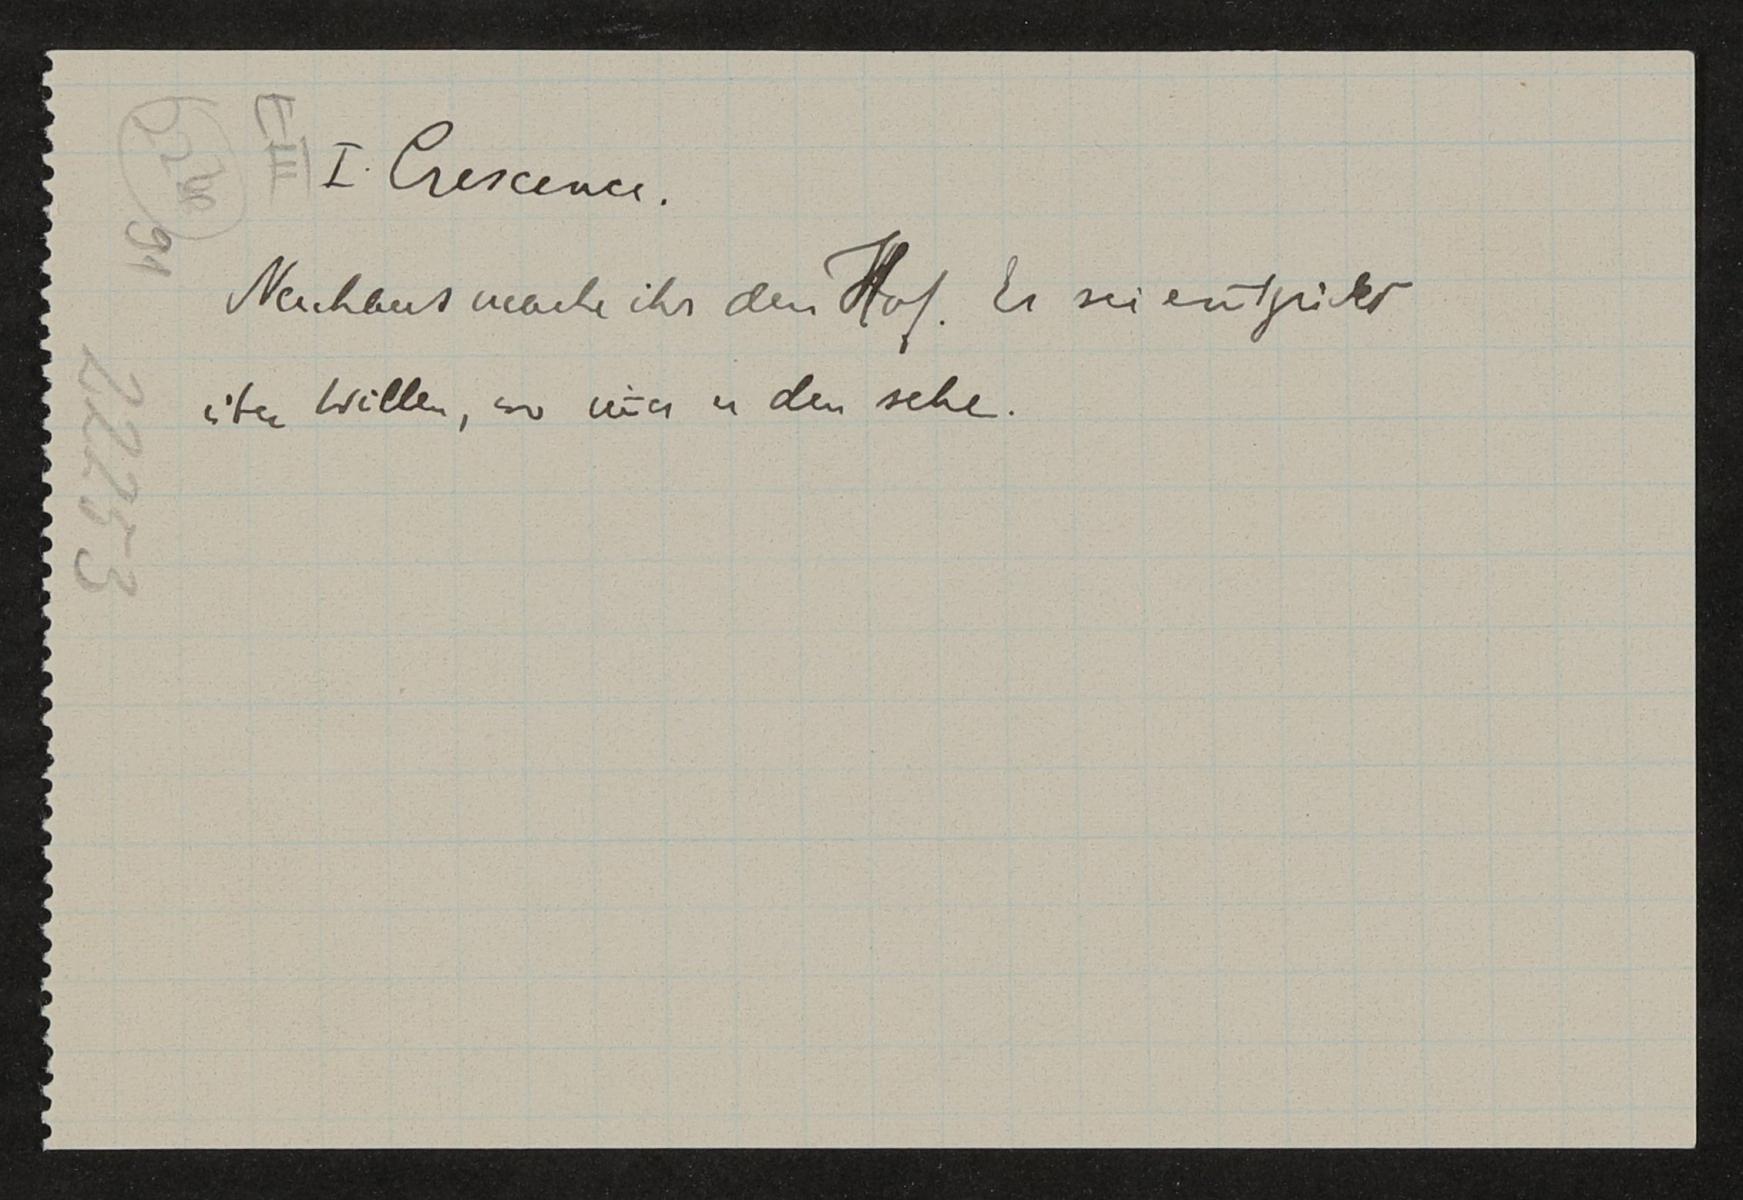 E III
91
22253
I. Crescence.
Neuhaus mache ihr den Hof. Er sei entzückt
über Willen, wo im̄er er den sehe.